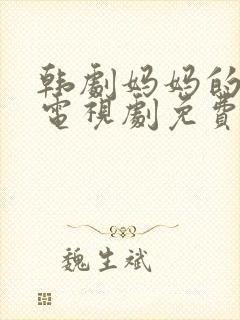 韩劇妈妈的
電視劇免費
魏生斌